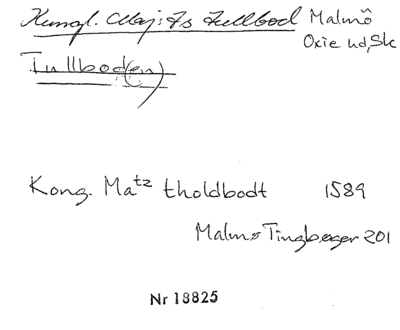 Kungl. Maj:ts Tullbod Malmö
Oxie hd, Sk
Tullbod(en)
Kong. Matz tholdbodt 1589
Malmø Tingbøger 201
Nr 18825